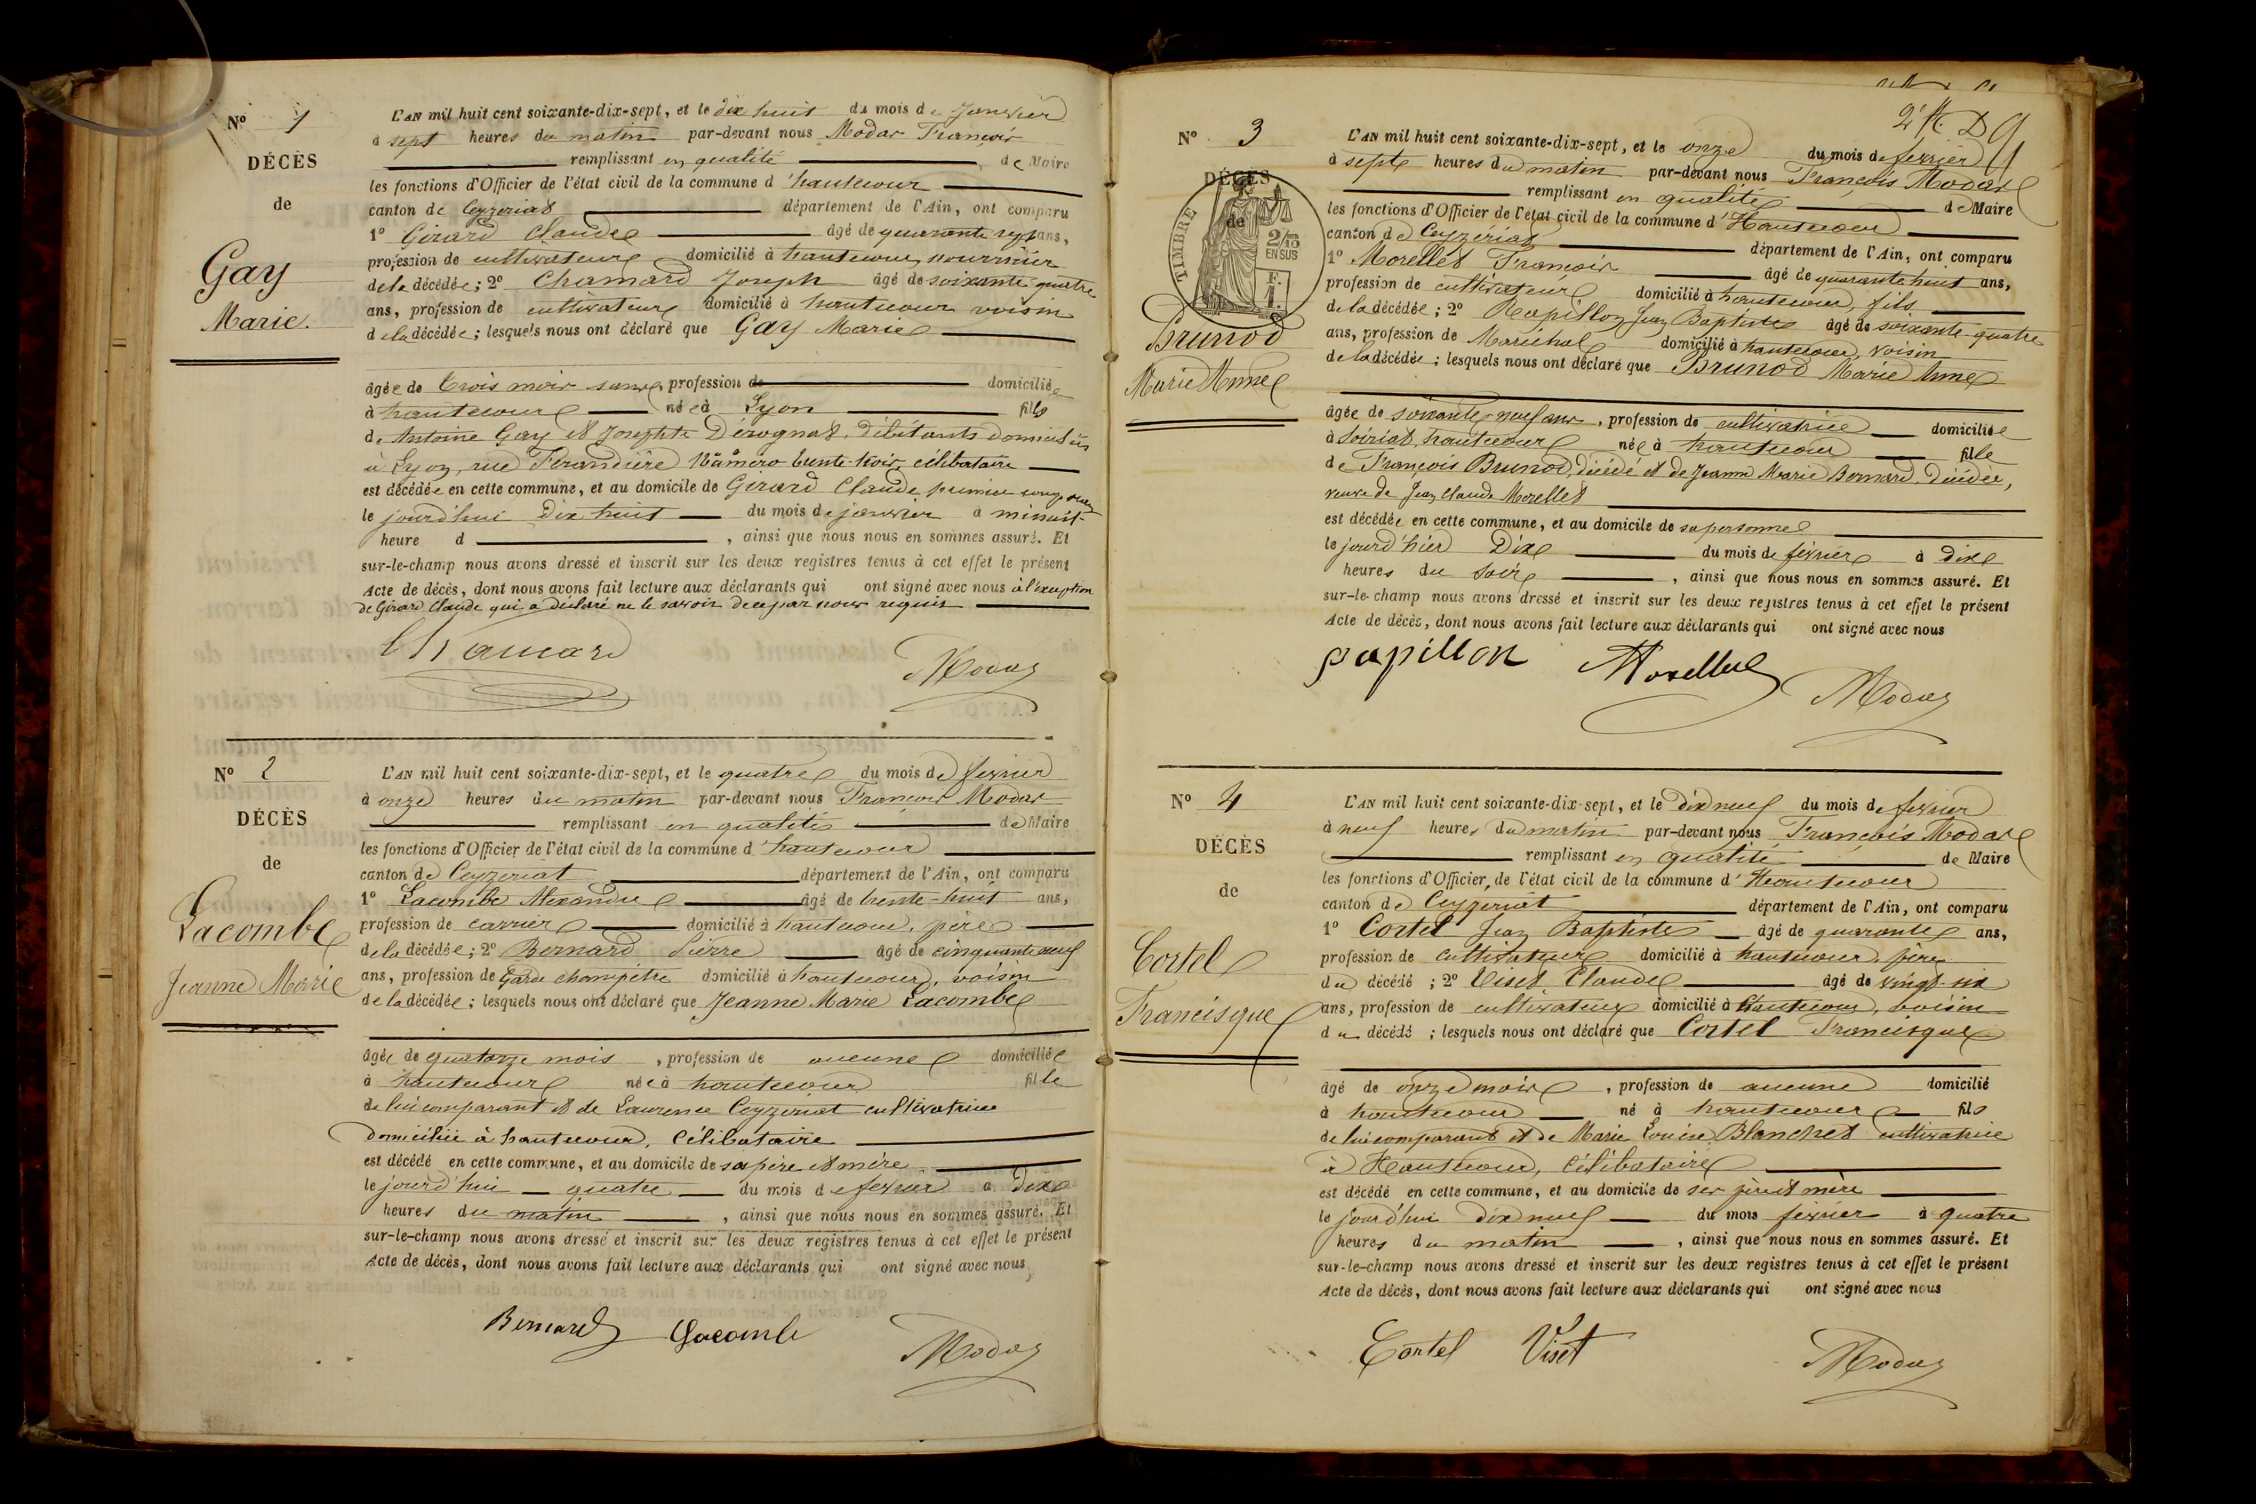 Nº 1
DÉCÈS
de
Gay
Marie.
L'AN mil huit cent soixante-dix-sept, et le dix huit du mois de Janvier
à sept heures du matin par-devant nous Modas François
remplissant en qualité de Maire
les fonctions d'Officier de l'état civil de la commune d'hautecour
canton de Ceyzeriat département de l'Ain, ont comparu
1º Girard Claude âgé de quarante sept ans,
profession de cultivateur domicilié à hautecour nourricier
de la décédée; 2º Chamard Joseph âgé de soixante quatre
ans, profession de cultivateur domicilié à hautecour voisin
de la décédée; lesquels nous ont déclaré que Gay Marie
âgée de trois mois sans profession de domiciliée
à hautecour née à Lyon fille
de Antoine Gay et Josephte Dérognat, débitants domiciliés
à Lyon, rue Ferandière Numéro trente-trois, célibataire
est décédée en cette commune, et au domicile de Girard Claude premier comparant
le jourd'hui dix huit du mois de janvier à minuit
heure d , ainsi que nous nous en sommes assuré. Et
sur-le-champ nous avons dressé et inscrit sur les deux registres tenus à cet effet le présent
Acte de décès, dont nous avons fait lecture aux déclarants qui ont signé avec nous à l'exeption
de Girard Claude qui a déclaré ne le savoir de ce par nous requis
Chamard Modas
Nº 2
DÉCÈS
de
Lacombe
Jeanne Marie
L'AN mil huit cent soixante-dix-sept, et le quatre du mois de fevrier
à onze heures du matin par-devant nous François Modas
remplissant en qualité de Maire
les fonctions d'Officier de l'état civil de la commune d'hautecour
canton de Ceyzeriat département de l'Ain, ont comparu
1º Lacombe Alexandre âgé de trente-huit ans,
profession de carrier domicilié à hautecour, père
de la décédée; 2º Bernard Pierre âgé de cinquante neuf
ans, profession de Garde champêtre domicilié à hautecour, voisin
de la décédée; lesquels nous ont déclaré que Jeanne Marie Lacombe
âgée de quatorze mois , profession de aucune domiciliée
à hautecour née à hautecour fille
de lui comparant et de Laurence Ceyzeriat cultivatrice
domiciliée à hautecour, célibataire
est décédé en cette commune, et au domicile de sa père et mère
le jourd'hui quatre du mois de fevrier à dix
heures du matin , ainsi que nous nous en sommes assuré. Et
sur-le-champ nous avons dressé et inscrit sur les deux registres tenus à cet effet le présent
Acte de décès, dont nous avons fait lecture aux déclarants qui ont signé avec nous
Bernard Lacombe Modas
Nº 3
DÉCÈS
de
TIMBRE
2/10
EN SUS
Brunod
Marie Anne
L'AN mil huit cent soixante-dix-sept, et le onze du mois de fevrier
à sept heures du matin par-devant nous François Modas
remplissant en qualité de Maire
les fonctions d'Officier de l'état civil de la commune d'Hautecour
canton de Ceyzériat département de l'Ain, ont comparu
1º Morellet François âgé de quarante huit ans,
profession de cultivateur domicilié à hautecour, fils
de la décédée; 2º Papillon Jean Baptiste âgé de soixante-quatre
ans, profession de Maréchal domicilié à hautecour, voisin
de la décédée; lesquels nous ont déclaré que Brunod Marie Anne
âgée de soixante-neuf ans, profession de cultivatrice domiciliée
à Soiriat, hautecour née à hautecour fille
de François Brunod, décédé et de Jeanne Marie Bernard décédée,
veuve de Jean Claude Morellet
est décédée en cette commune, et au domicile de sa personne
le jourd'hier Dix du mois de février à dix
heures du soir , ainsi que nous nous en sommes assuré. Et
sur-le-champ nous avons dressé et inscrit sur les deux registres tenus à cet effet le présent
Acte de décès, dont nous avons fait lecture aux déclarants qui ont signé avec nous
papillon Morellet Modas
Nº 4
DÉCÈS
de
Cortel
Francisque
L'AN mil huit cent soixante-dix-sept, et le dix neuf du mois de fevrier
à neuf heures du matin par-devant nous François Modas
remplissant en qualité de Maire
les fonctions d'Officier de l'état civil de la commune d'Hautecour
canton de Ceyzeriat département de l'Ain, ont comparu
1º Cortel Jean Baptiste âgé de quarante ans,
profession de cultivateur domicilié à hautecour, père
du décédé; 2º Viset Claude âgé de vingt-six
ans, profession de cultivateur domicilié à Hautecour, voisin
du décédé; lesquels nous ont déclaré que Cortel Francisque
âgé de onze mois , profession de aucune domicilié
à hautecour né à hautecour fils
de lui comparant et de Marie Louise Blanchet cultivatrice
à Hautecour, célibataire
est décédé en cette commune, et au domicile de ses père et mère
le jourd'hui dix neuf du mois fevrier à quatre
heures du matin , ainsi que nous nous en sommes assuré. Et
sur-le-champ nous avons dressé et inscrit sur les deux registres tenus à cet effet le présent
Acte de décès, dont nous avons fait lecture aux déclarants qui ont signé avec nous
Cortel Viset Modas